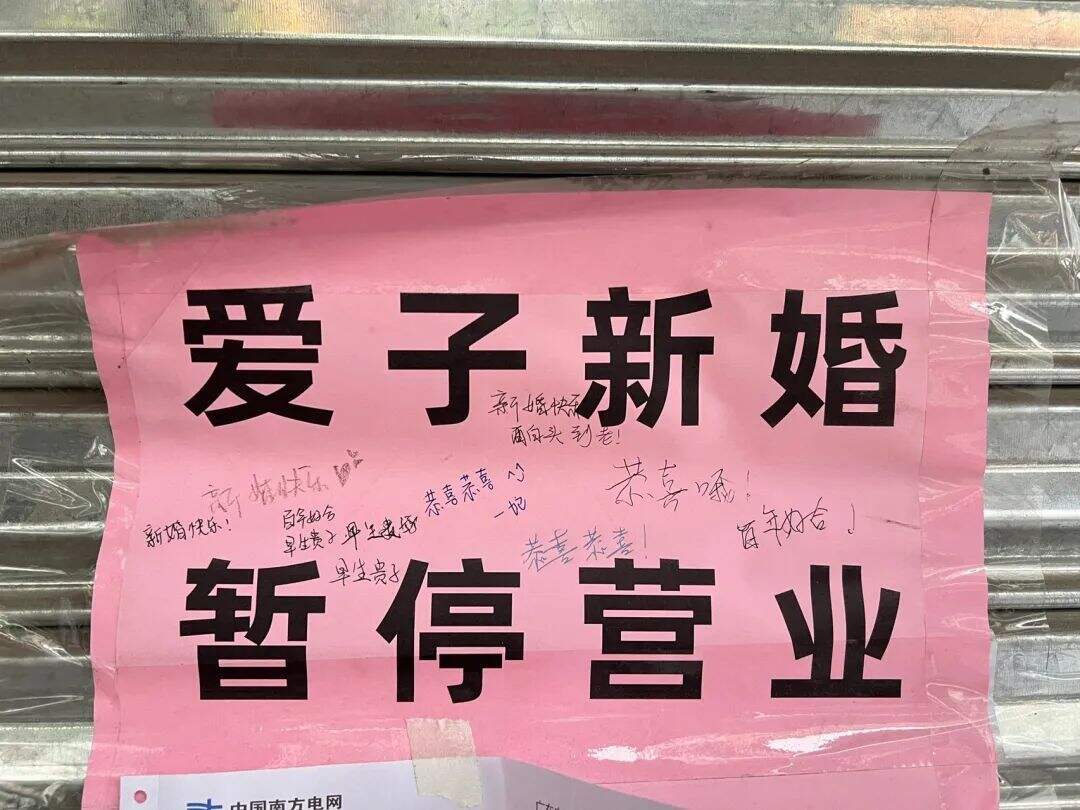 爱子新婚
新婚快乐
白头到老!
恭喜恭喜 ^^
恭喜哦!
新婚快乐
新婚快乐!
百年好合
早生贵子
百年好合!
恭喜恭喜!
早生贵子
暂停营业
中国南方电网